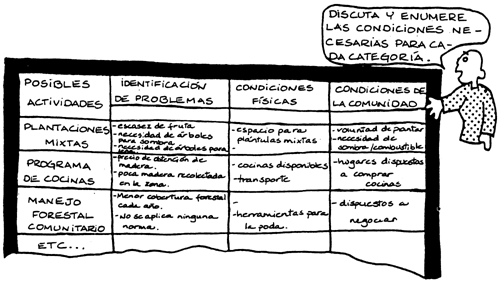 DISCUTA Y ENUMERE
LAS CONDICIONES NE-
CESARIAS PARA CA-
DA CATEGORÍA.
POSIBLES
ACTIVIDADES
IDENTIFICACIÓN
DE PROBLEMAS
CONDICIONES
FÍSICAS
CONDICIONES DE
LA COMUNIDAD
PLANTACIONES
MIXTAS
-escasez de fruta
-necesidad de árboles
para sombra
-necesidad de árboles para
-espacio para
plántulas mixtas
-
-voluntad de plantar
-necesidad de
sombra/combustible
PROGRAMA
DE COCINAS
-precio de obtención de
madera.
-poca madera recolectada
en la zona.
-cocinas disponibles
-transporte
-hogares dispuestos
a comprar
cocinas
MANEJO
FORESTAL
COMUNITARIO
-Menor cobertura forestal
cada año.
-No se aplica ninguna
norma.
-
-herramientas para
la poda.
-dispuestos a
negociar
ETC...